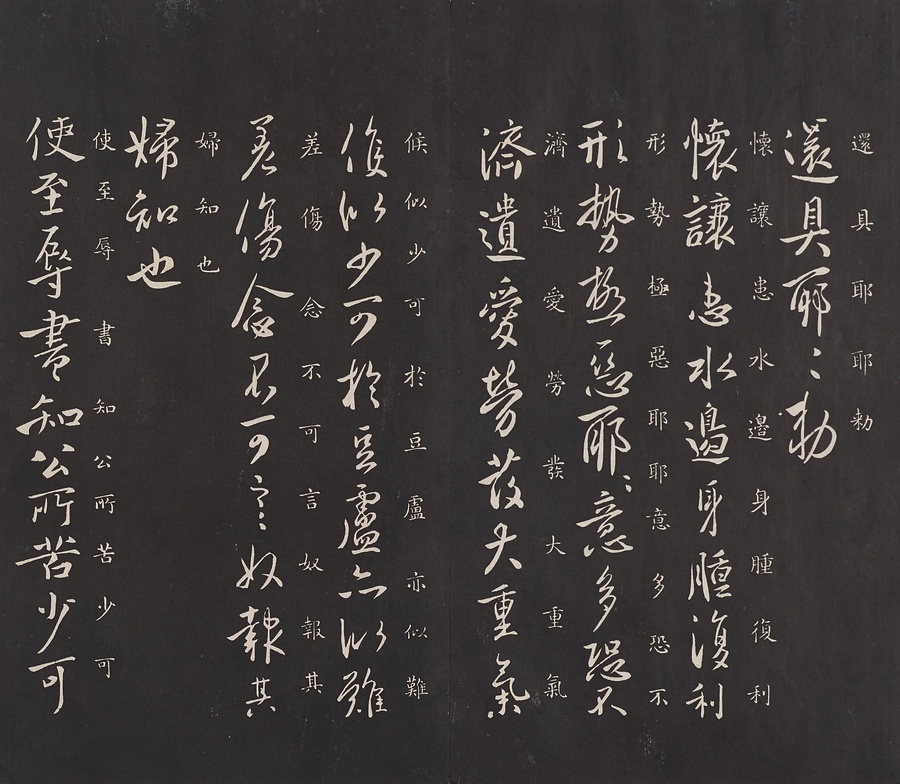 還具耶耶勅
還具耶〻勅
懷讓患水邉身腫復利
懷讓患水邉身腫復利
形勢極惡耶耶意多恐不
形勢極惡耶〻意多恐不
濟遺愛勞發大重氣
濟遺愛勞發大重氣
候似少可於豆盧亦似難
候似少可於豆盧亦似難
差傷念不可言奴報其
差傷念不可言奴報其
婦知也
婦知也
使至辱書知公所苦少可
使至辱書知公所苦少可